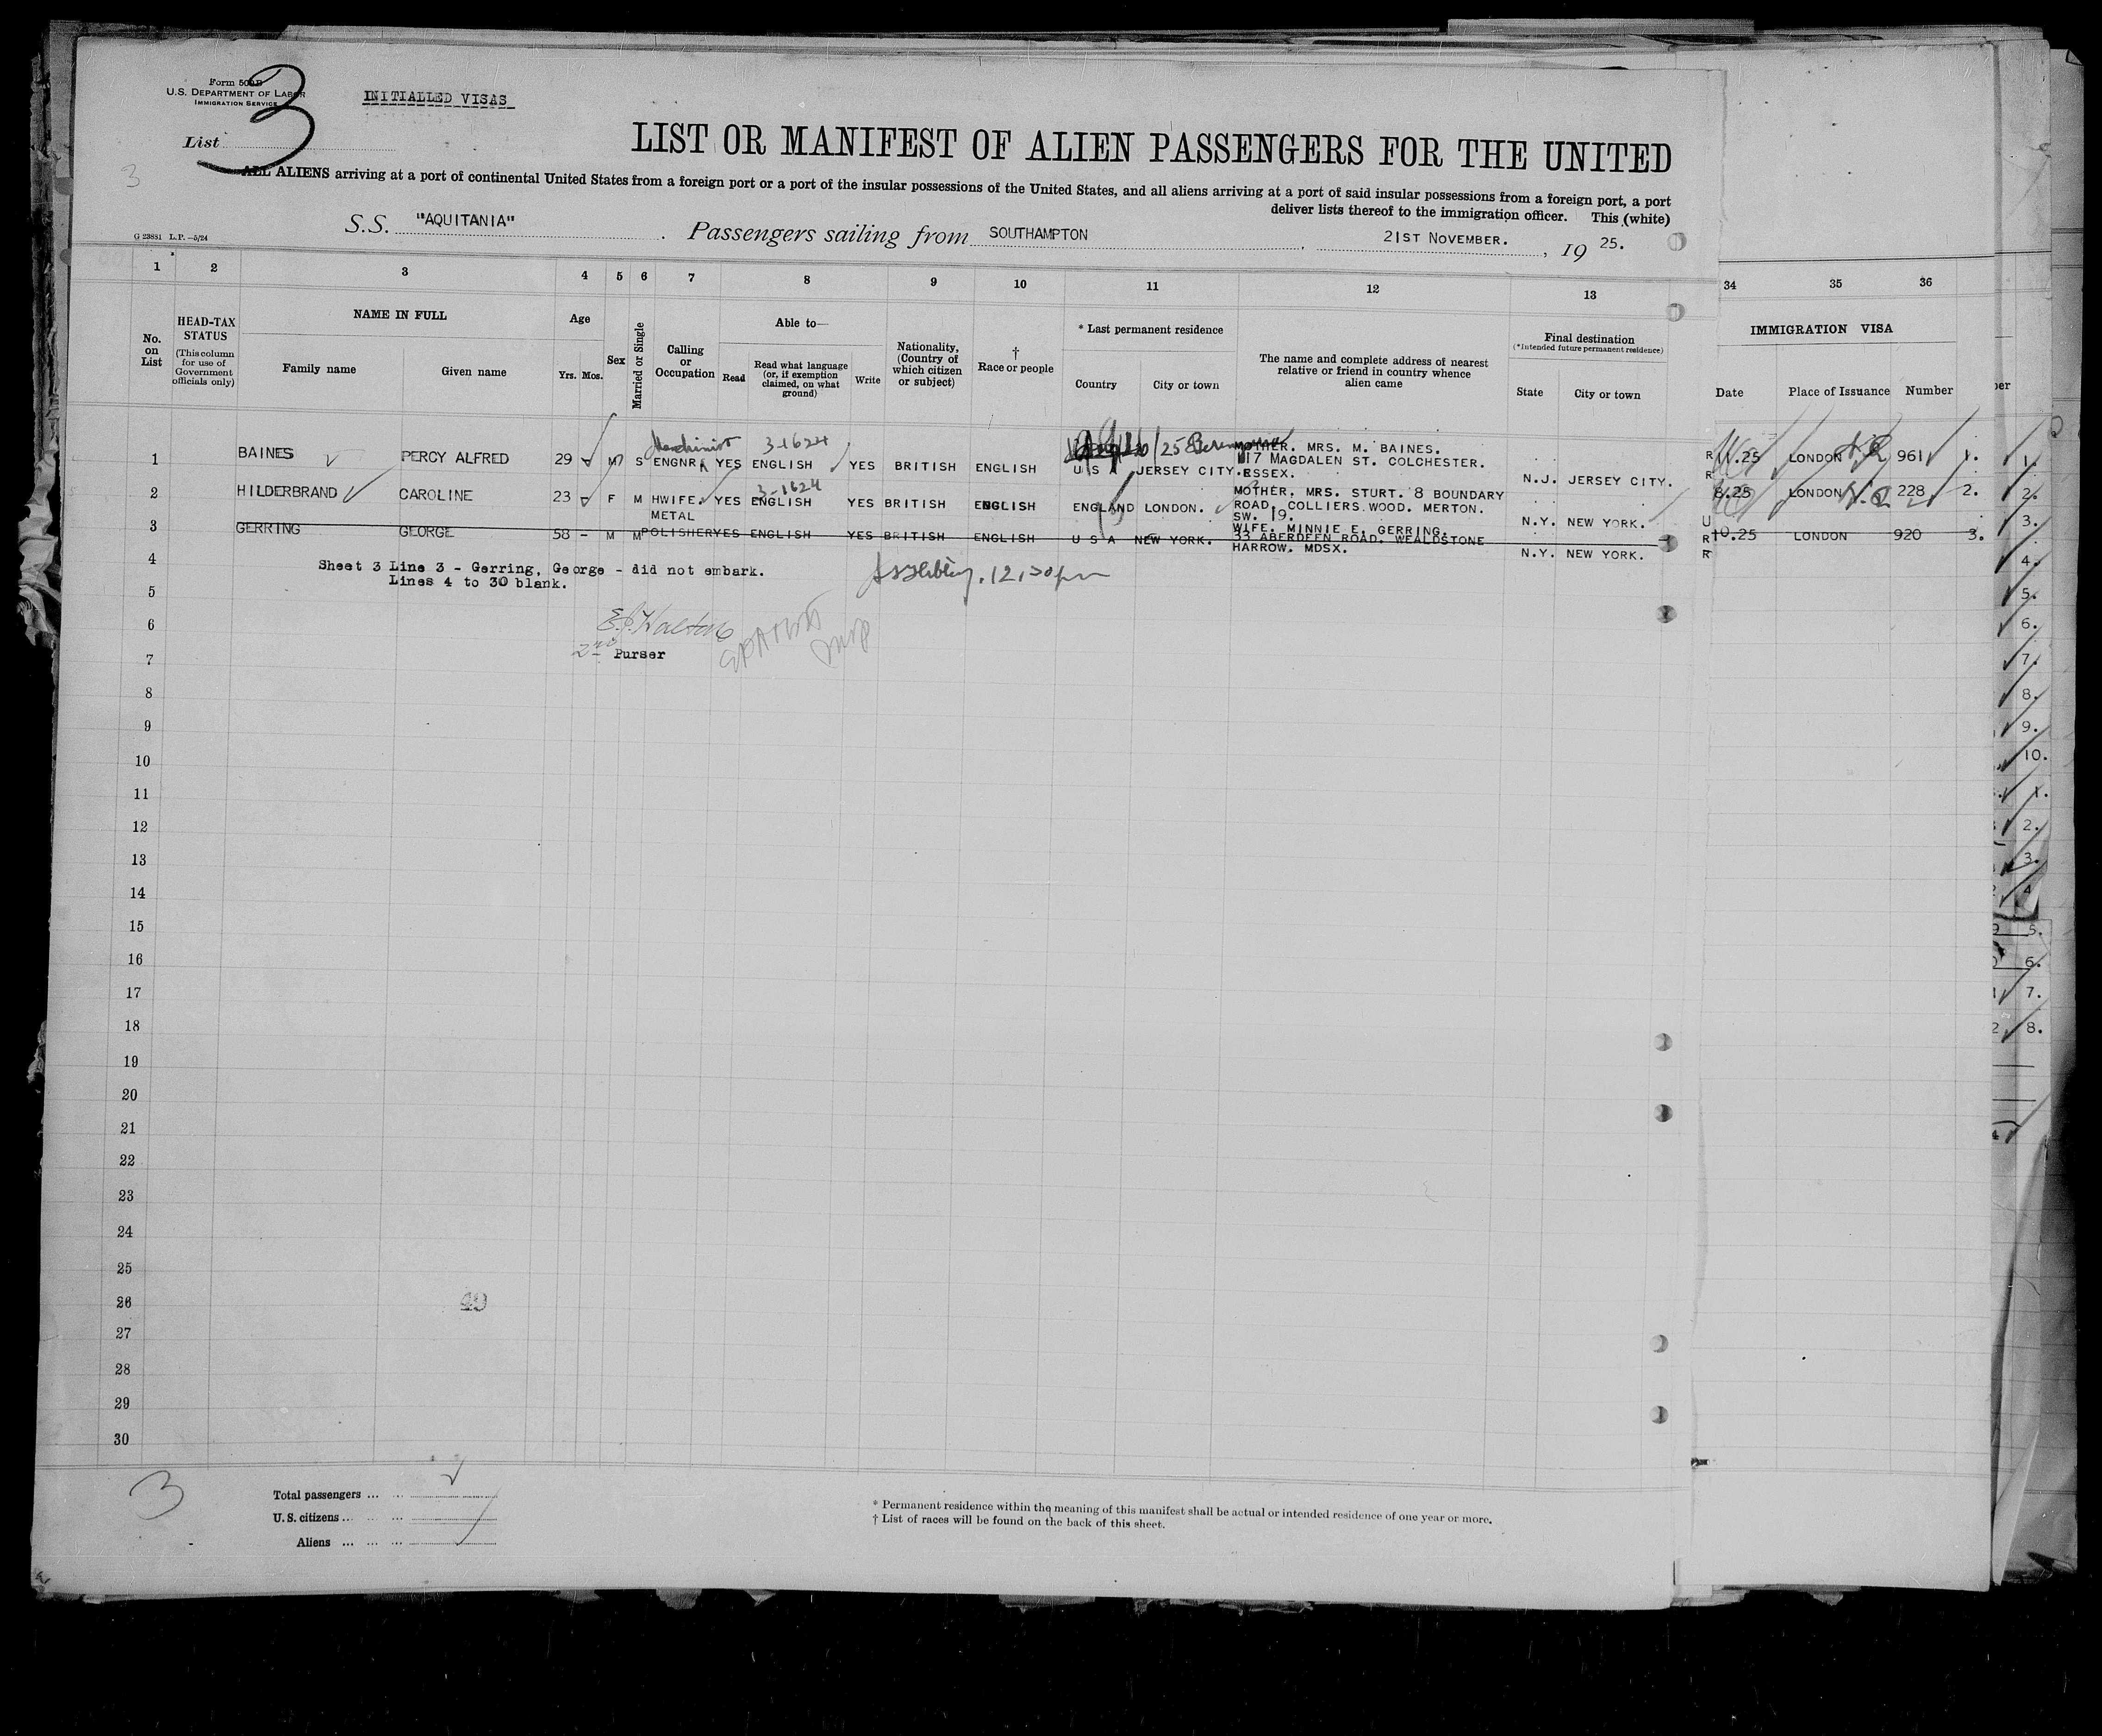 Form 500 B
U.S. DEPARTMENT OF LABOR
IMMIGRATION SERVICE
INITIALLED VISAS
List 3
3
LIST OR MANIFEST OF ALIEN PASSENGERS FOR THE UNITED
ALL ALIENS arriving at a port of continental United States from a foreign port or a port of the insular possessions of the United States, and all aliens arriving at a port of said insular possessions from a foreign port, a port
deliver lists thereof to the immigration officer. This (white)
S.S. "AQUITANIA" Passengers sailing from SOUTHAMPTON, 21ST NOVEMBER., 19 25.
G 23881 L.P.—5/24
1 2 3 4 5 6 7 8 9 10 11 12 13 34 35 36
No. on List
HEAD-TAX STATUS (This column for use of Government officials only)
NAME IN FULL
Family name Given name
Age
Yrs. Mos.
Sex
Married or Single
Calling or Occupation
Able to—
Read
Read what language (or, if exemption claimed, on what ground)
Write
Nationality, (Country of which citizen or subject)
† Race or people
* Last permanent residence
Country City or town
The name and complete address of nearest relative or friend in country whence alien came
Final destination
(*Intended future permanent residence)
State City or town
IMMIGRATION VISA
Date Place of Issuance Number
Machinist 3-1624
1 BAINES PERCY ALFRED 29 M S ENGNR YES ENGLISH YES BRITISH ENGLISH U S A JERSEY CITY. MOTHER. MRS. M. BAINES.
117 MAGDALEN ST. COLCHESTER.
ESSEX. N.J. JERSEY CITY. 11.25 LONDON 961 1.
3-1624
2 HILDERBRAND CAROLINE 23 F M HWIFE. YES ENGLISH YES BRITISH ENGLISH ENGLAND LONDON. MOTHER. MRS. STURT. 8 BOUNDARY
ROAD. COLLIERS WOOD. MERTON.
SW. 19. N.Y. NEW YORK. 8.25 LONDON 228 2.
3 GERRING GEORGE 58 - M M METAL POLISHER YES ENGLISH YES BRITISH ENGLISH U S A NEW YORK. WIFE. MINNIE E. GERRING.
33 ABERDEEN ROAD. WEALDSTONE
HARROW. MDSX. N.Y. NEW YORK. 10.25 LONDON 920 3.
4
Sheet 3 Line 3 - Gerring, George - did not embark.
Lines 4 to 30 blank.
12.30pm
5
6
2nd Purser
7
8
9
10
11
12
13
14
15
16
17
18
19
20
21
22
23
24
25
26
49
27
28
29
30
3
Total passengers ... ...
U.S. citizens ... ... ...
Aliens ... ... ...
* Permanent residence within the meaning of this manifest shall be actual or intended residence of one year or more.
† List of races will be found on the back of this sheet.
1.
2.
3.
4.
5.
6.
7.
8.
9.
10.
1.
2.
3.
4
5.
6.
7.
8.